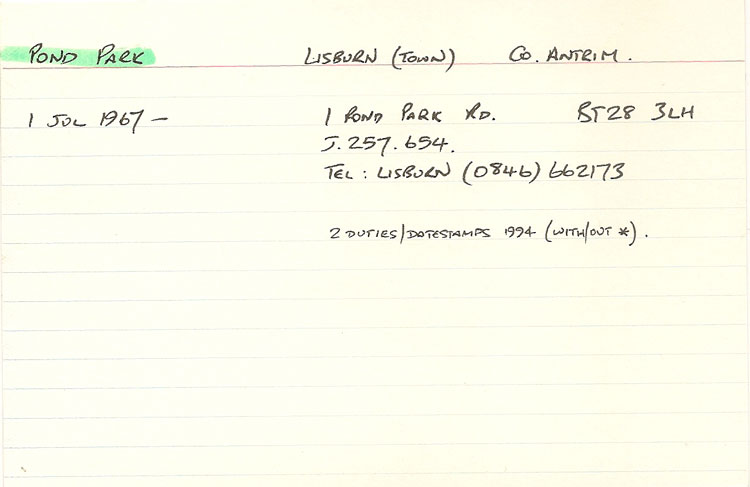 POND PARK LISBURN (TOWN) CO. ANTRIM.
1 JUL 1967 – 1 POND PARK RD. BT28 3LH
J.257.654.
TEL : LISBURN (0846) 662173
2 DUTIES/DATESTAMPS 1994 (WITH/OUT *).